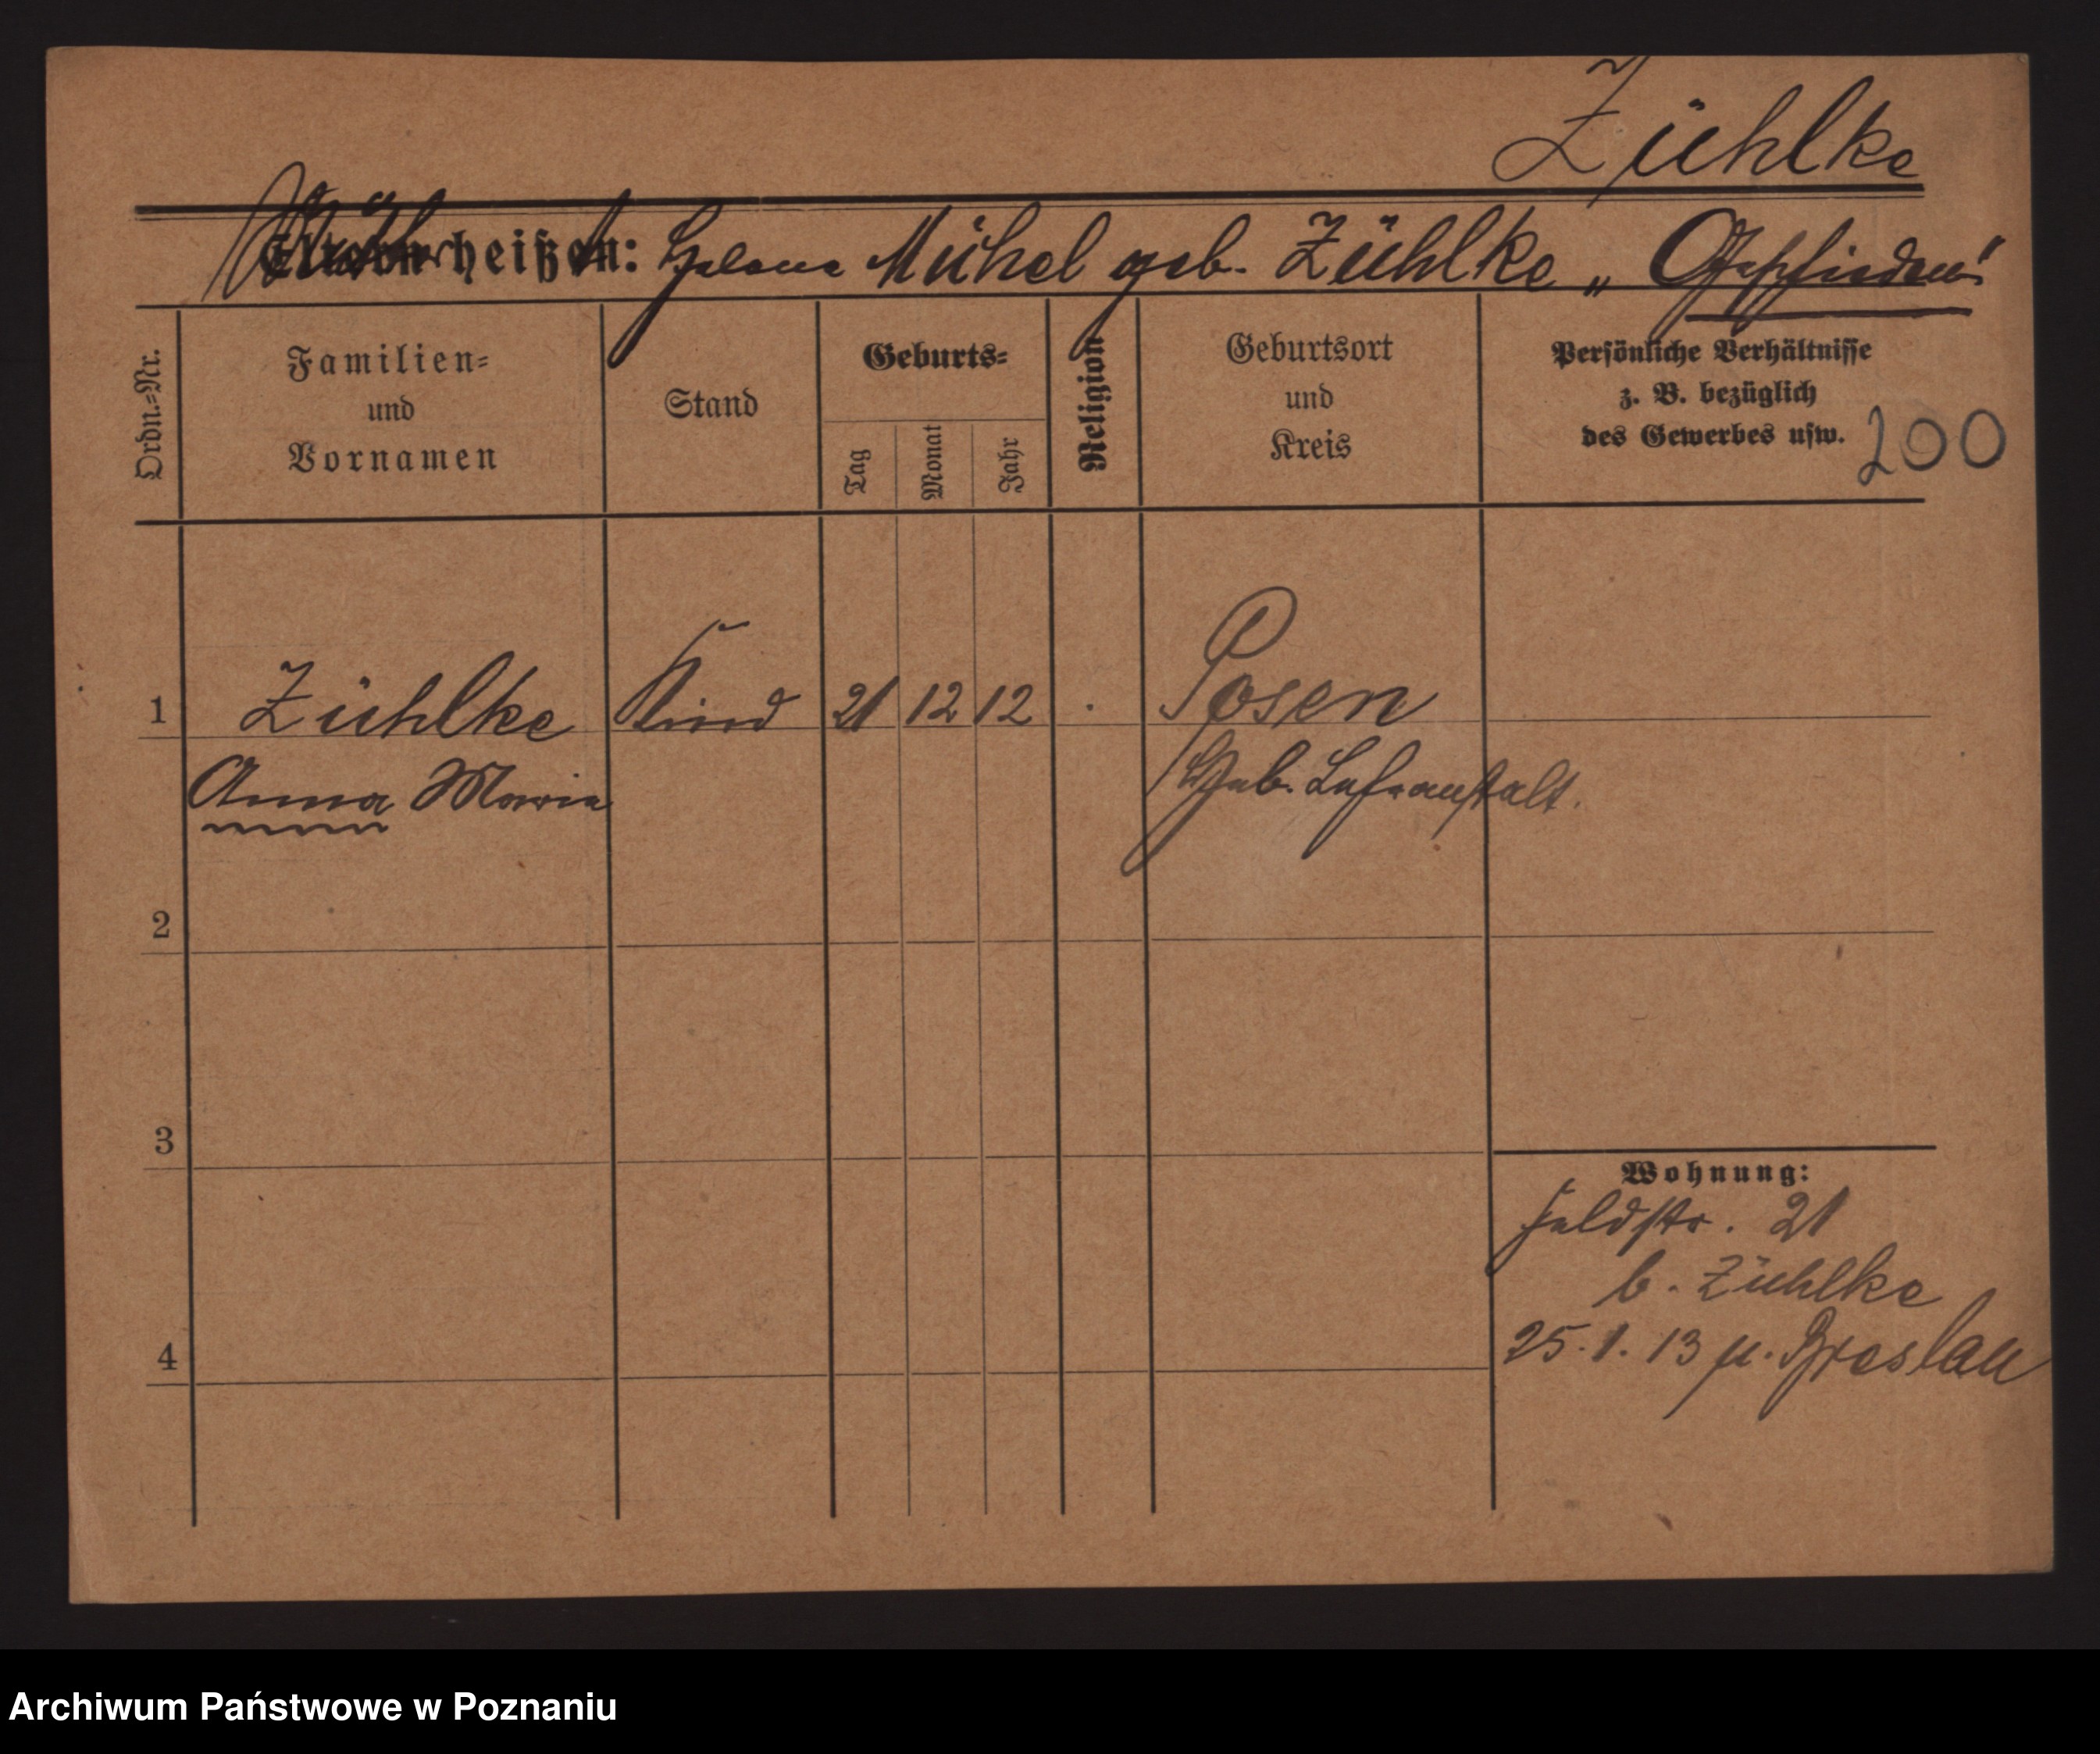 Zühlke
Eltern heißen: Helene Mühel geb. Zühlke „Geschieden“
Ordn.=Nr.
Familien=
und
Vornamen
Stand
Geburts=
Tag
Monat
Jahr
Religion
Geburtsort
und
Kreis
Persönliche Verhältnisse
z. B. bezüglich
des Gewerbes usw.
200
1 Zühlke Kind 21 12 12 . Posen
Anna Marie Heb. Lehranstalt.
2
3
Wohnung:
Feldstr. 21
b. Zühlke
4 25.1.13 n. Breslau
Archiwum Państwowe w Poznaniu